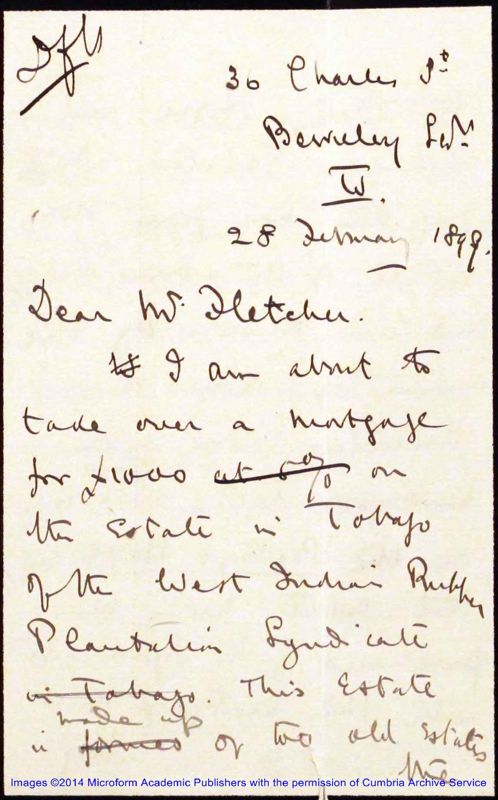 Dft
36 Charles St
Berkeley Sqre
W.
28 February 1899.
Dear Mr Fletcher.
I am about to
take over a mortgage
for £1000 at 5% on
the Estate in Tobago
of the West Indian Rubber
Plantation Syndicate
in Tobago. This Estate
made up
is formed of two old Estates
the
Images ©2014 Microform Academic Publishers with the permission of Cumbria Archive Service